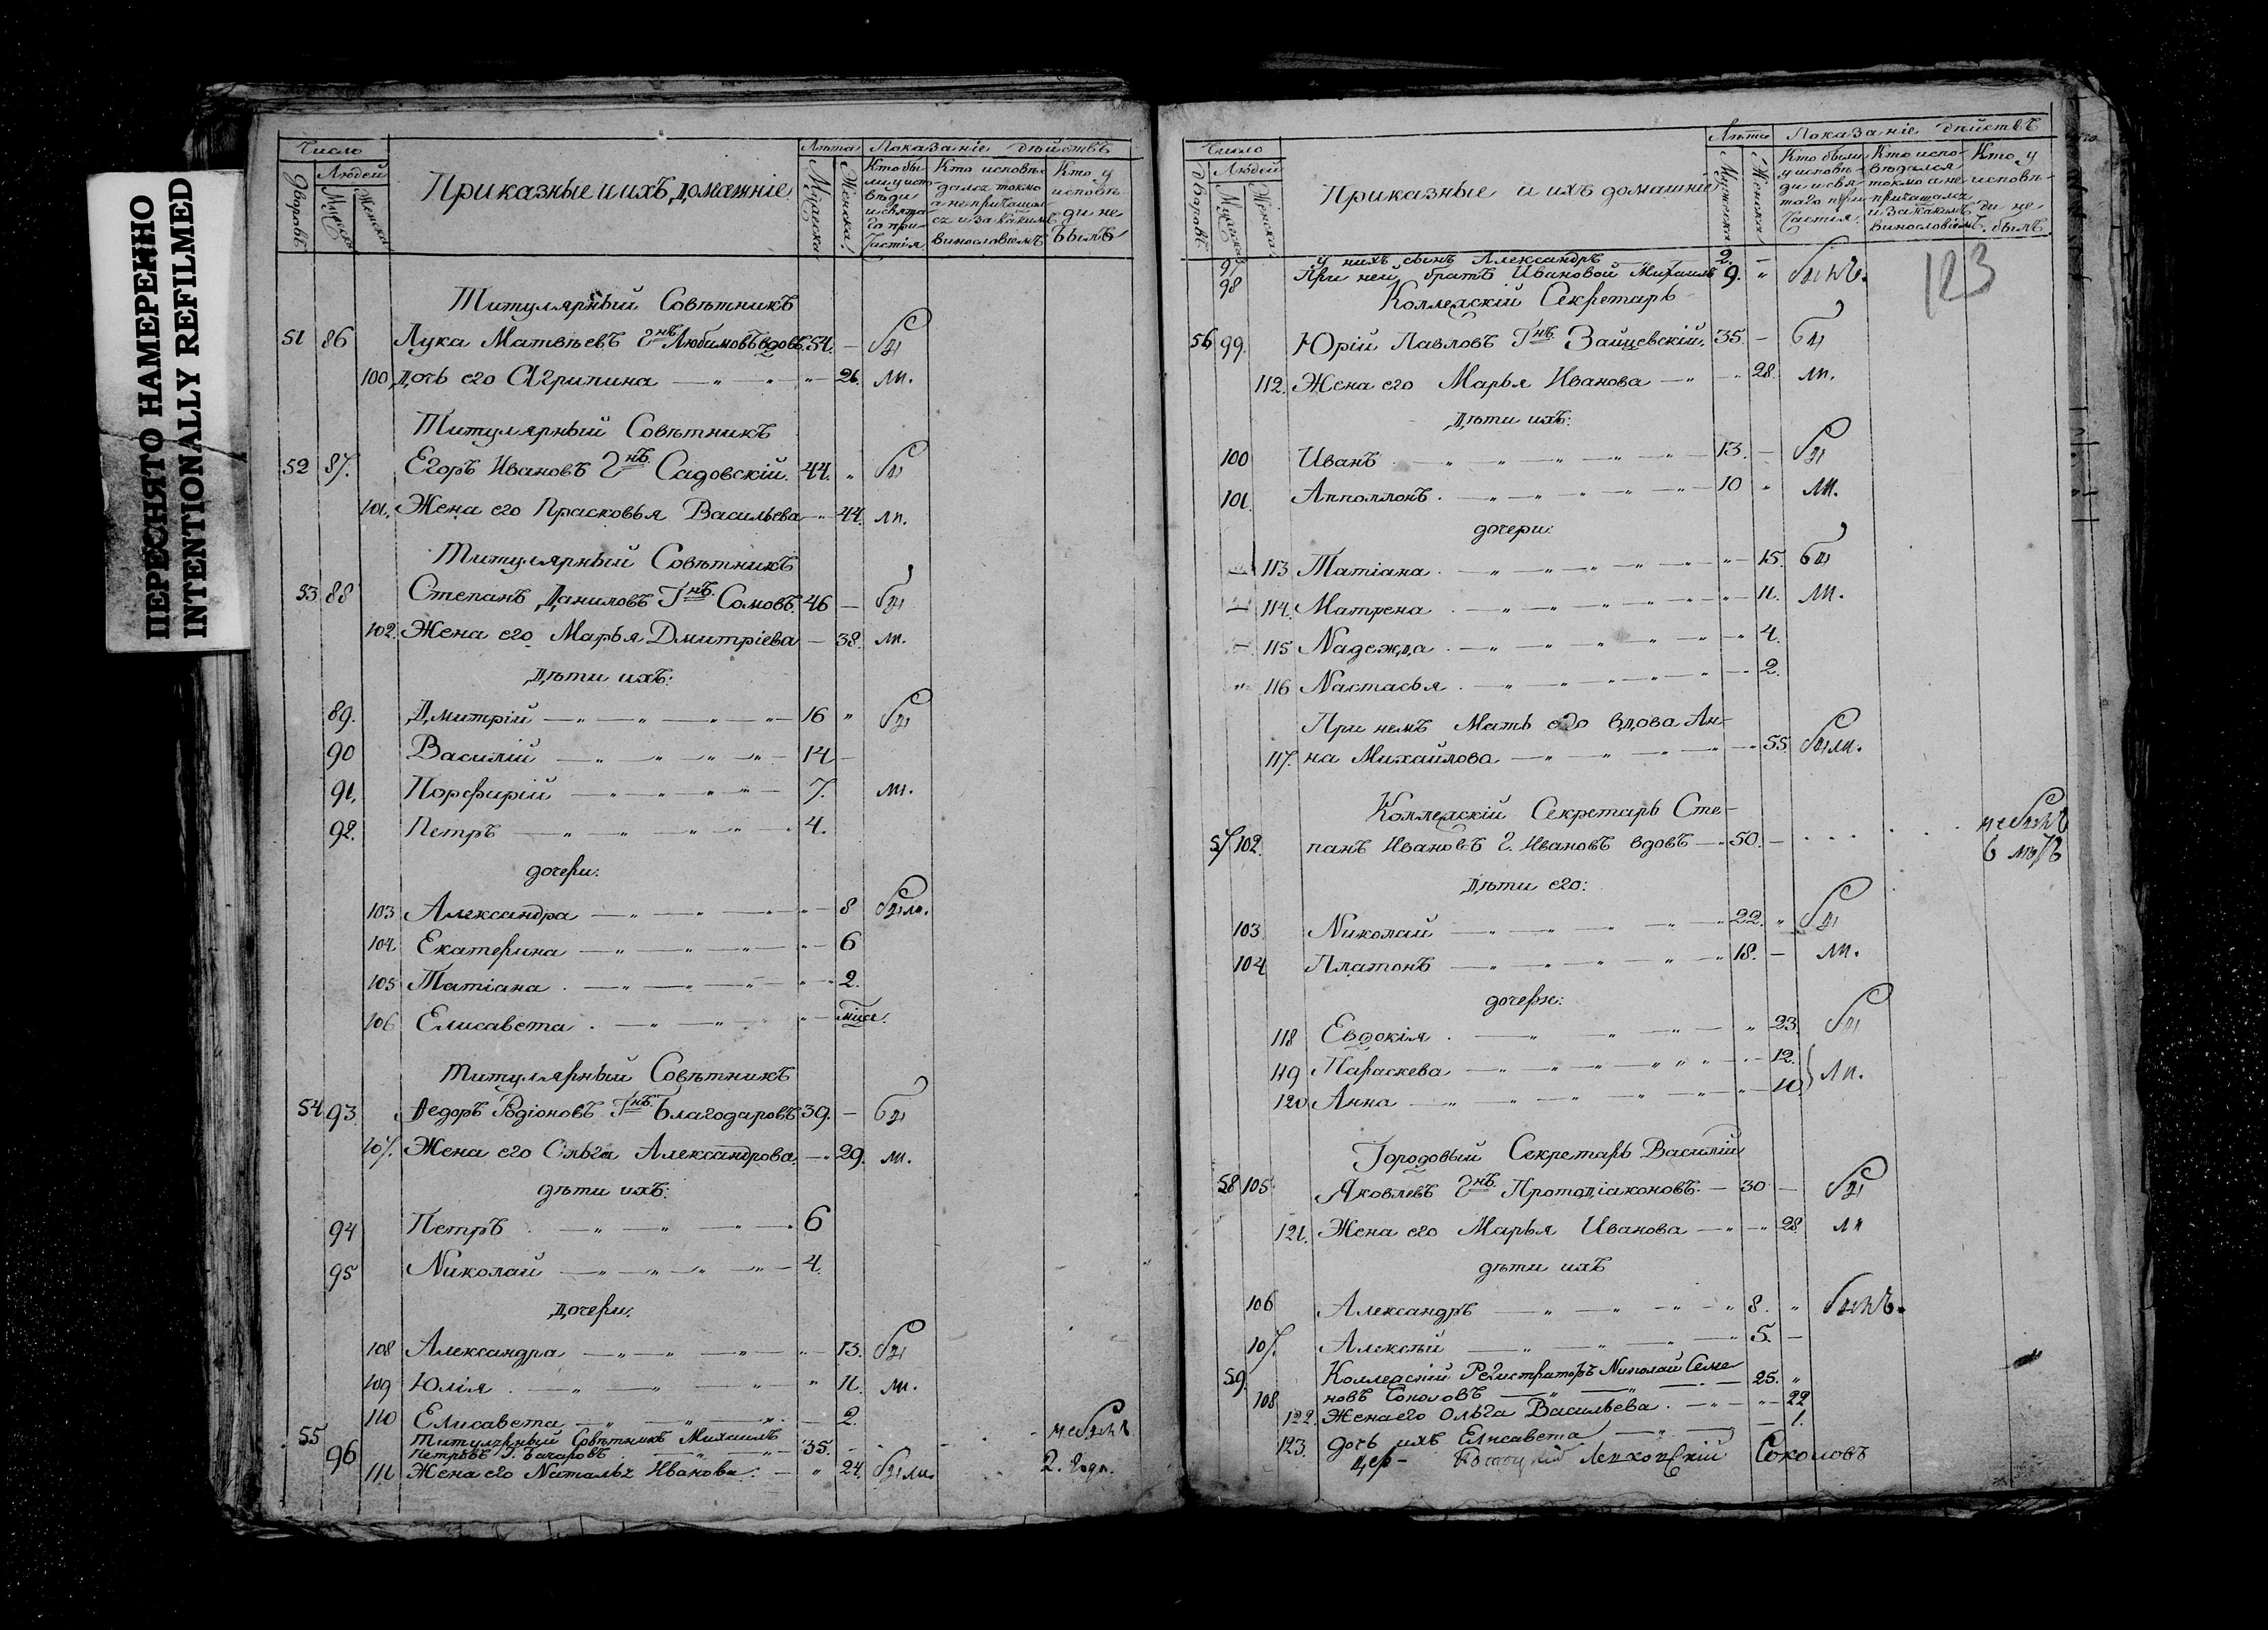 ПЕРЕСНЯТО НАМЕРЕННО
INTENTIONALLY REFILMED
Число
Лѣта Показаніе дѣйствъ
Дворовъ
Людей
Мужеска
Женска
Приказные и ихъ домашніе
Мужеска
Женска
Кто были у исповѣди и святаго причастія
Кто исповѣдался токмо а не причащался и за какимъ винословіемъ
Кто у исповѣди не былъ
Титулярный Совѣтникъ
51 86 Лука Матвѣевъ Гнъ Любимовъ вдовъ 54. — бы
100 дочь его Агрипина — " — " " — 26. ли.
Титулярный Совѣтникъ
52 87. Егоръ Ивановъ Гнъ Садовскій. 44. " бы
101. Жена его Прасковья Васильева — " 44. ли.
Титулярный Совѣтникъ
53 88 Степанъ Даниловъ Гнъ Сомовъ. 46 — бы
102. Жена его Марья Дмитріева — 38. ли.
Дѣти ихъ:
89. Дмитрій — " — " — " — 16 " бы
90 Василій — " — " — " — 14 —
91. Порфирій — " — " — " — 7. ли.
92. Петръ — " — " — " — 4.
дочери:
103 Александра — " — " — " — 8 были.
104 Екатерина — " — " — " — 6
105 Татіана . — " — " — " — 2.
106 Елисавета . — " — " " — мца.
Титулярный Совѣтникъ
54 93. Ѳедоръ Родіоновъ Гнъ Благодаровъ 39. — бы
107. Жена его Ольга Александрова. — " 29. ли.
дѣти ихъ:
94 Петръ . — " — " — . 6
95 Николай — " — " — " — 4.
дочери:
108 Александра — " — " — " — 13. бы
109 Юлія . — " — " — " 11. ли.
110 Елисавета — " — " — " — 2.
55 Титулярный Совѣтникъ Михаилъ небылъ
96 Петровъ Г. — " — " — 35. — 2. года.
111 Жена его Наталья Иванова. — " 24. были.
Число
Лѣта Показаніе дѣйствъ
Дворовъ
Людей
Мужеска
Женска
Приказные и ихъ домашніе
Мужеска
Женска
Кто были у исповѣди и святаго причастія.
Кто исповѣдался токмо а не причащался и за какимъ винословіемъ.
Кто у исповѣди не былъ
123
97 у нихъ сынъ Александръ 2. —
98 При ней братъ Ивановой Михаилъ 9. " былъ.
Коллежскій Секретарь
56 99. Юрій Павловъ Гнъ Зайцевскій. 35. — бы
112. Жена его Марья Иванова — " — " 28. ли.
Дѣти ихъ:
100 Иванъ . — " — " — " — 13. — бы
101 Апполлонъ . — " — " — " — 10 " ли.
дочери:
113 Татіана . — " — " — " — 15. бы
114. Матрена . — " — " — " — 11. ли.
115 Надежда . — " — " — " — 4.
116 Настасья . — " — " — " — 2.
При немъ Мать его вдова Ан-
117. на Михайлова — " — " — " — 55. были.
Коллежскій Секретарь Сте- небылъ
57 102. панъ Ивановъ Г. Ивановъ вдовъ — " 50. — 6 лѣтъ
Дѣти его:
103 Николай — " — " — " 22. " бы
104 Платонъ — " — " — " 18. — ли.
дочери:
118 Евдокія . — " — " — " 23. бы
119 Параскева — " — " — " — 12. ли.
120 Анна — " — " — " — 10.
Городовый Секретарь Василій
58 105 Яковлевъ Гнъ Протодіаконовъ. — 30 — бы
121. Жена его Марья Иванова — " — " 28. ли
дѣти ихъ
106 Александръ — " — " — " 8. " былъ.
107. Алексѣй — " — " — 5. —
59. Коллежскій Регистраторъ Николай Семе-
108 новъ Соколовъ — " — " — 25. "
122. Жена его Ольга Васильева. — " — " 22
123. дочь ихъ Елисавета — " — 1.
Соколовъ